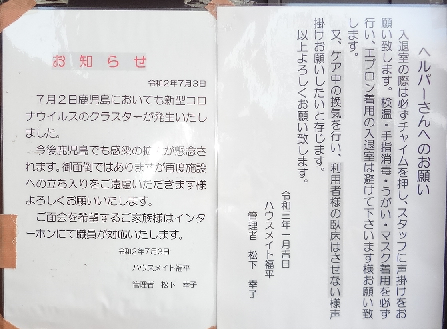 お知らせ
令和2年7月3日
7月2日鹿児島においても新型コロ
ナウイルスのクラスターが発生いたし
ました。
今後鹿児島でも感染の拡大が懸念さ
れます。御面倒ではありますが再度施設
への立ち入りをご遠慮いただきます様
よろしくお願いいたします。
ご面会を希望するご家族様はインタ
ーホンにて職員が対応いたします。
令和2年7月2日
ハウスメイト福平
管理者 松下 幸子
ヘルパーさんへのお願い
入退室の際は必ずチャイムを押し、スタッフに声掛けをお
願い致します。検温・手指消毒・うがい・マスク着用を必ず
行い、エプロン着用の入退室は避けて下さいます様お願い致
します。
又、ケア中の換気を行い、利用者様の臥床はさせない様声
掛けお願いしたいと存じます。
以上よろしくお願い致します。
ハウスメイト福平
管理者 松下 幸子